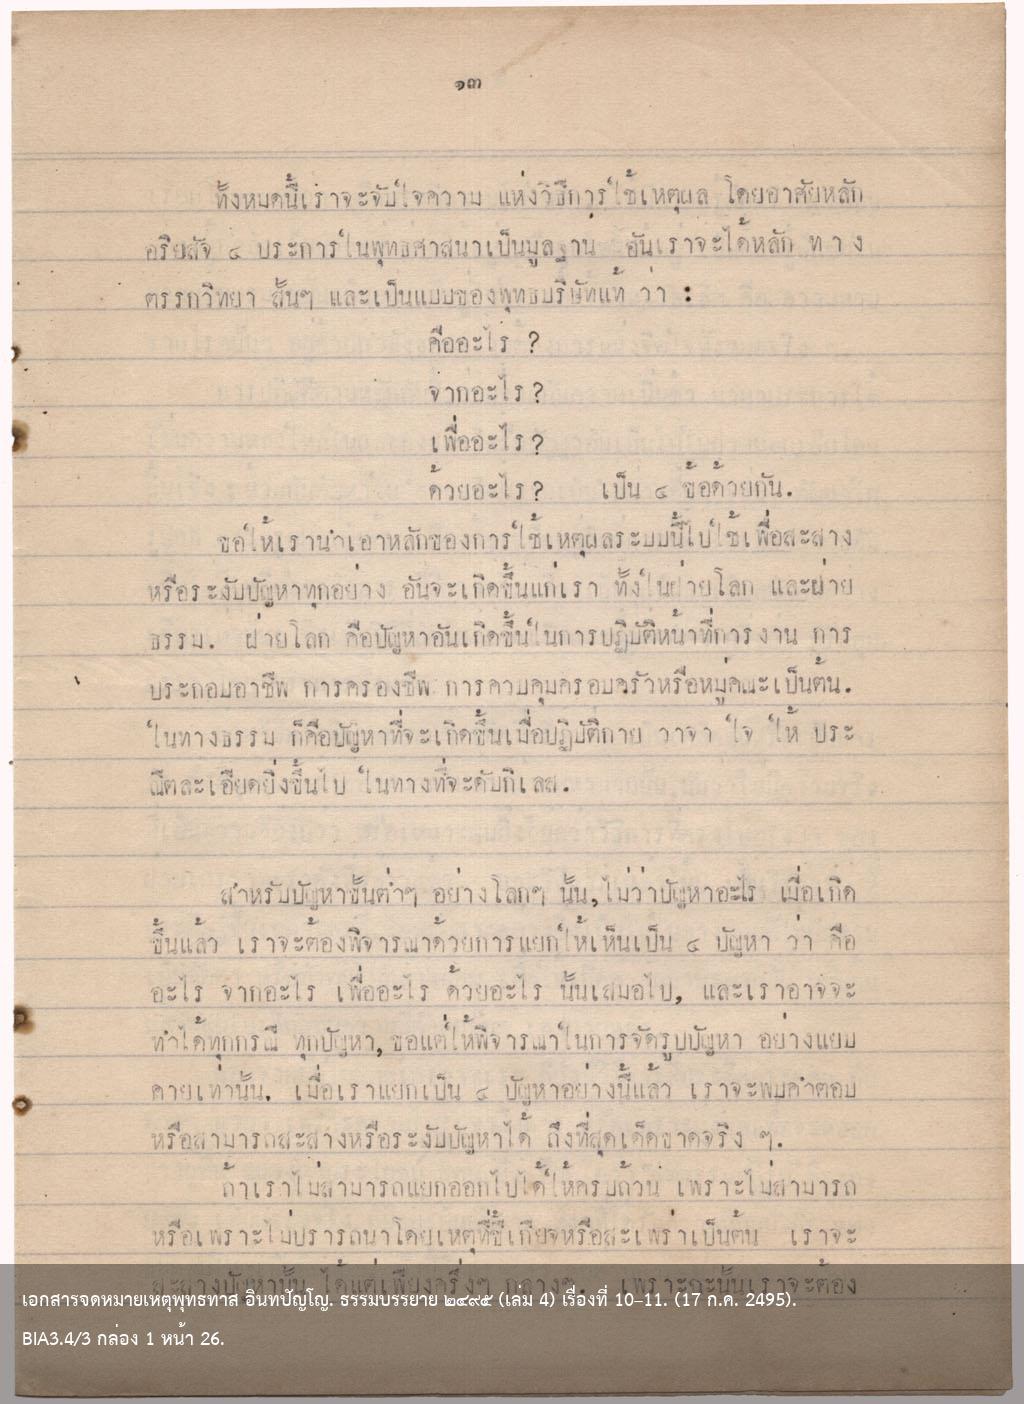 ๑๓
ทั้งหมดนี้เราจะจับใจความ แห่งวิธีการใช้เหตุผล โดยอาศัยหลัก
อริยสัจ ๔ ประการในพุทธศาสนาเป็นมูลฐาน อันเราจะได้หลัก ท า ง
ตรรกวิทยา สั้นๆ และเป็นแบบของพุทธบริษัทแท้ ว่า :
คืออะไร ?
จากอะไร ?
เพื่ออะไร ?
ด้วยอะไร ? เป็น ๔ ข้อด้วยกัน.
ขอให้เรานำเอาหลักของการใช้เหตุผลระบบนี้ไปใช้เพื่อสะสาง
หรือระงับปัญหาทุกอย่าง อันจะเกิดขึ้นแก่เรา ทั้งในฝ่ายโลก และฝ่าย
ธรรม. ฝ่ายโลก คือปัญหาอันเกิดขึ้นในการปฏิบัติหน้าที่การงาน การ
ประกอบอาชีพ การครองชีพ การควบคุมครอบครัวหรือหมู่คณะเป็นต้น.
ในทางธรรม ก็คือปัญหาที่จะเกิดขึ้นเมื่อปฏิบัติกาย วาจา ใจ ให้ ประ
ณีตละเอียดยิ่งขึ้นไป ในทางที่จะดับกิเลส.
สำหรับปัญหาชั้นต่ำๆ อย่างโลกๆ นั้น, ไม่ว่าปัญหาอะไร เมื่อเกิด
ขึ้นแล้ว เราจะต้องพิจารณาด้วยการแยกให้เห็นเป็น ๔ ปัญหา ว่า คือ
อะไร จากอะไร เพื่ออะไร ด้วยอะไร นั้นเสมอไป, และเราอาจจะ
ทำได้ทุกกรณี ทุกปัญหา, ขอแต่ให้พิจารณาในการจัดรูปปัญหา อย่างแยบ
คายเท่านั้น. เมื่อเราแยกเป็น ๔ ปัญหาอย่างนี้แล้ว เราจะพบคำตอบ
หรือสามารถสะสางหรือระงับปัญหาได้ ถึงที่สุดเด็ดขาดจริง ๆ.
ถ้าเราไม่สามารถแยกออกไปได้ให้ครบถ้วน เพราะไม่สามารถ
หรือเพราะไม่ปรารถนาโดยเหตุที่ขี้เกียจหรือสะเพร่าเป็นต้น เราจะ
สะสางปัญหานั้น ได้แต่เพียงครึ่งๆ กลางๆ. เพราะฉะนั้นเราจะต้อง
เอกสารจดหมายเหตุพุทธทาส อินทปัญโญ. ธรรมบรรยาย ๒๔๙๕ (เล่ม 4) เรื่องที่ 10–11. (17 ก.ค. 2495).
BIA3.4/3 กล่อง 1 หน้า 26.